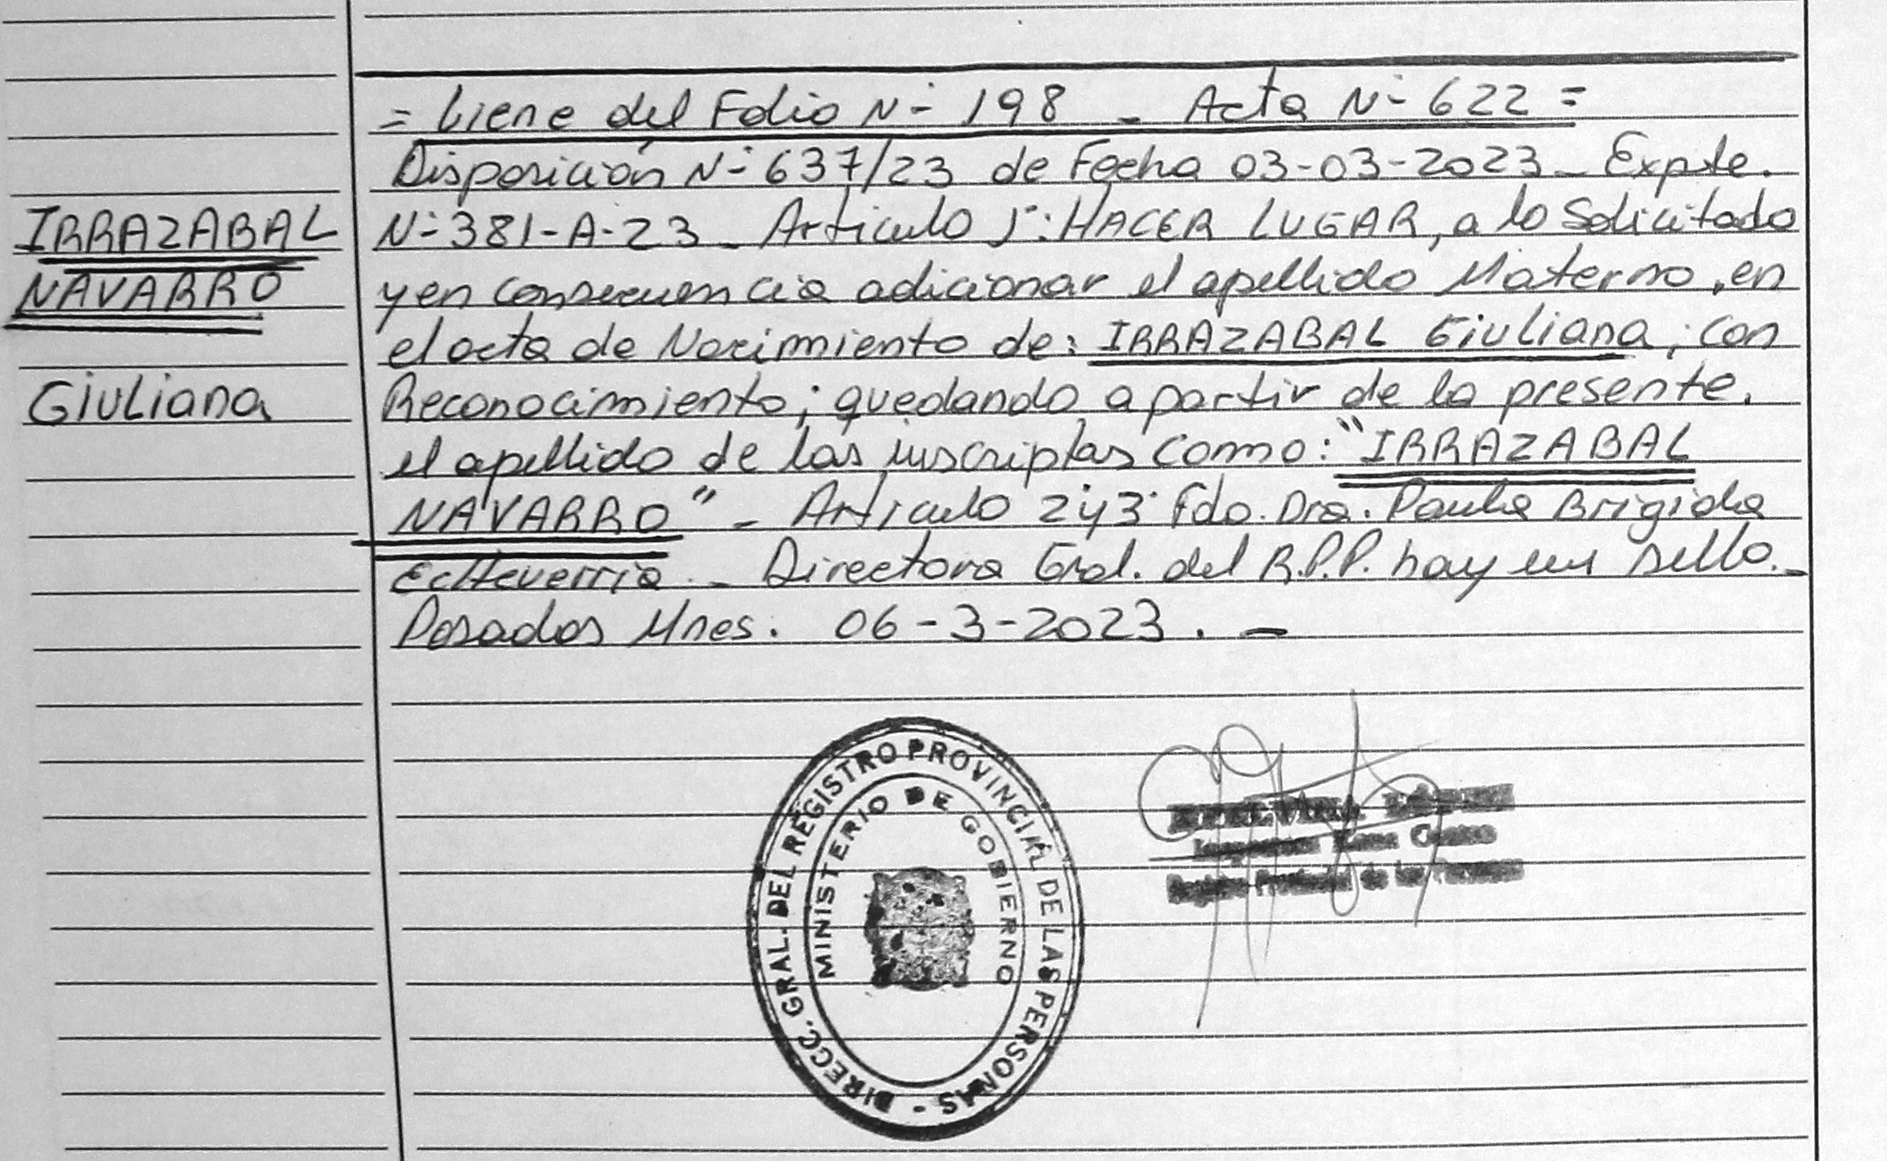 = Viene del Folio N- 198 - Acta N- 622 =
Disposición N- 637/23 de Fecha 03-03-2023 - Expte.
IRRAZABAL
N- 381-A-23 - Artículo 1°: HACER LUGAR, a lo Solicitado
NAVARRO
y en consecuencia adicionar el apellido Materno, en
el acta de Nacimiento de: IRRAZABAL Giuliana, con
Giuliana
Reconocimiento; quedando a partir de la presente.
el apellido de las inscriptas como: "IRRAZABAL
NAVARRO" - Artículo 2 y 3 Fdo. Dra. Paula Brigida
Echeverria - Directora Gral. del R.P.P. hay un sello.-
Posadas Mnes. 06-3-2023. -
DIRECC. GRAL. DEL REGISTRO PROVINCIAL DE LAS PERSONAS -
MINISTERIO DE GOBIERNO
Registro Provincial de las Personas